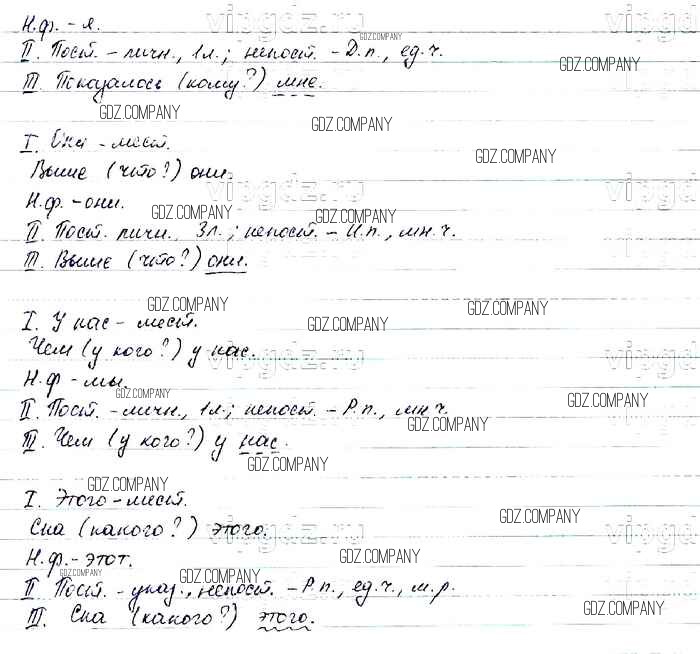 Н.ф. - я.
II. Пост. - личн., 1л.; непост. - Д.п., ед.ч.
III. Показалось (кому?) мне.
I. Они - мест.
Выше (что?) они.
Н.ф. - они.
II. Пост. личн., 3л.; непост. - И.п., мн.ч.
III. Выше (что?) они.
I. У нас - мест.
Чем (у кого?) у нас.
Н.ф - мы.
II. Пост. - личн., 1л.; непост. - Р.п., мн.ч.
III. Чем (у кого?) у нас.
I. Этого - мест.
Сна (какого?) этого.
Н.ф. - этот.
II Пост. - указ., непост. - Р.п., ед.ч., м.р.
III. Сна (какого?) этого.